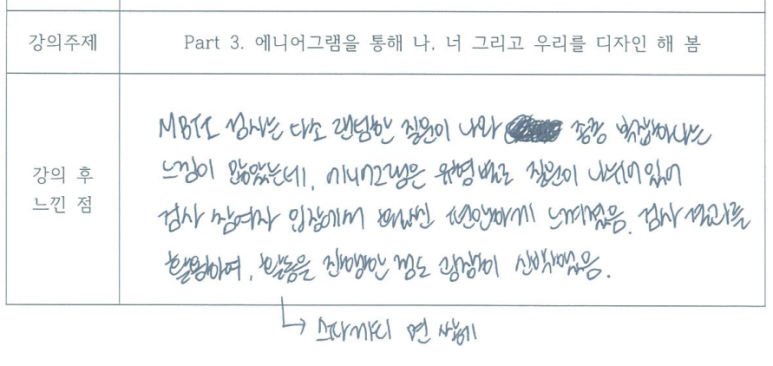 강의주제
Part 3. 에니어그램을 통해 나, 너 그리고 우리를 디자인 해 봄
강의 후
느낀 점
MBTI 검사는 다소 랜덤한 질문이 나와 종종 박하다는
느낌이 많았는데, 에니어그램은 유형별로 질문이 나뉘어 있어
검사 참여자 입장에서 훨씬 편안하게 느껴졌음. 검사 결과를
활용하여, 활동을 진행한 점도 굉장히 신박했음.
↳ 스파게티 면 쌓기